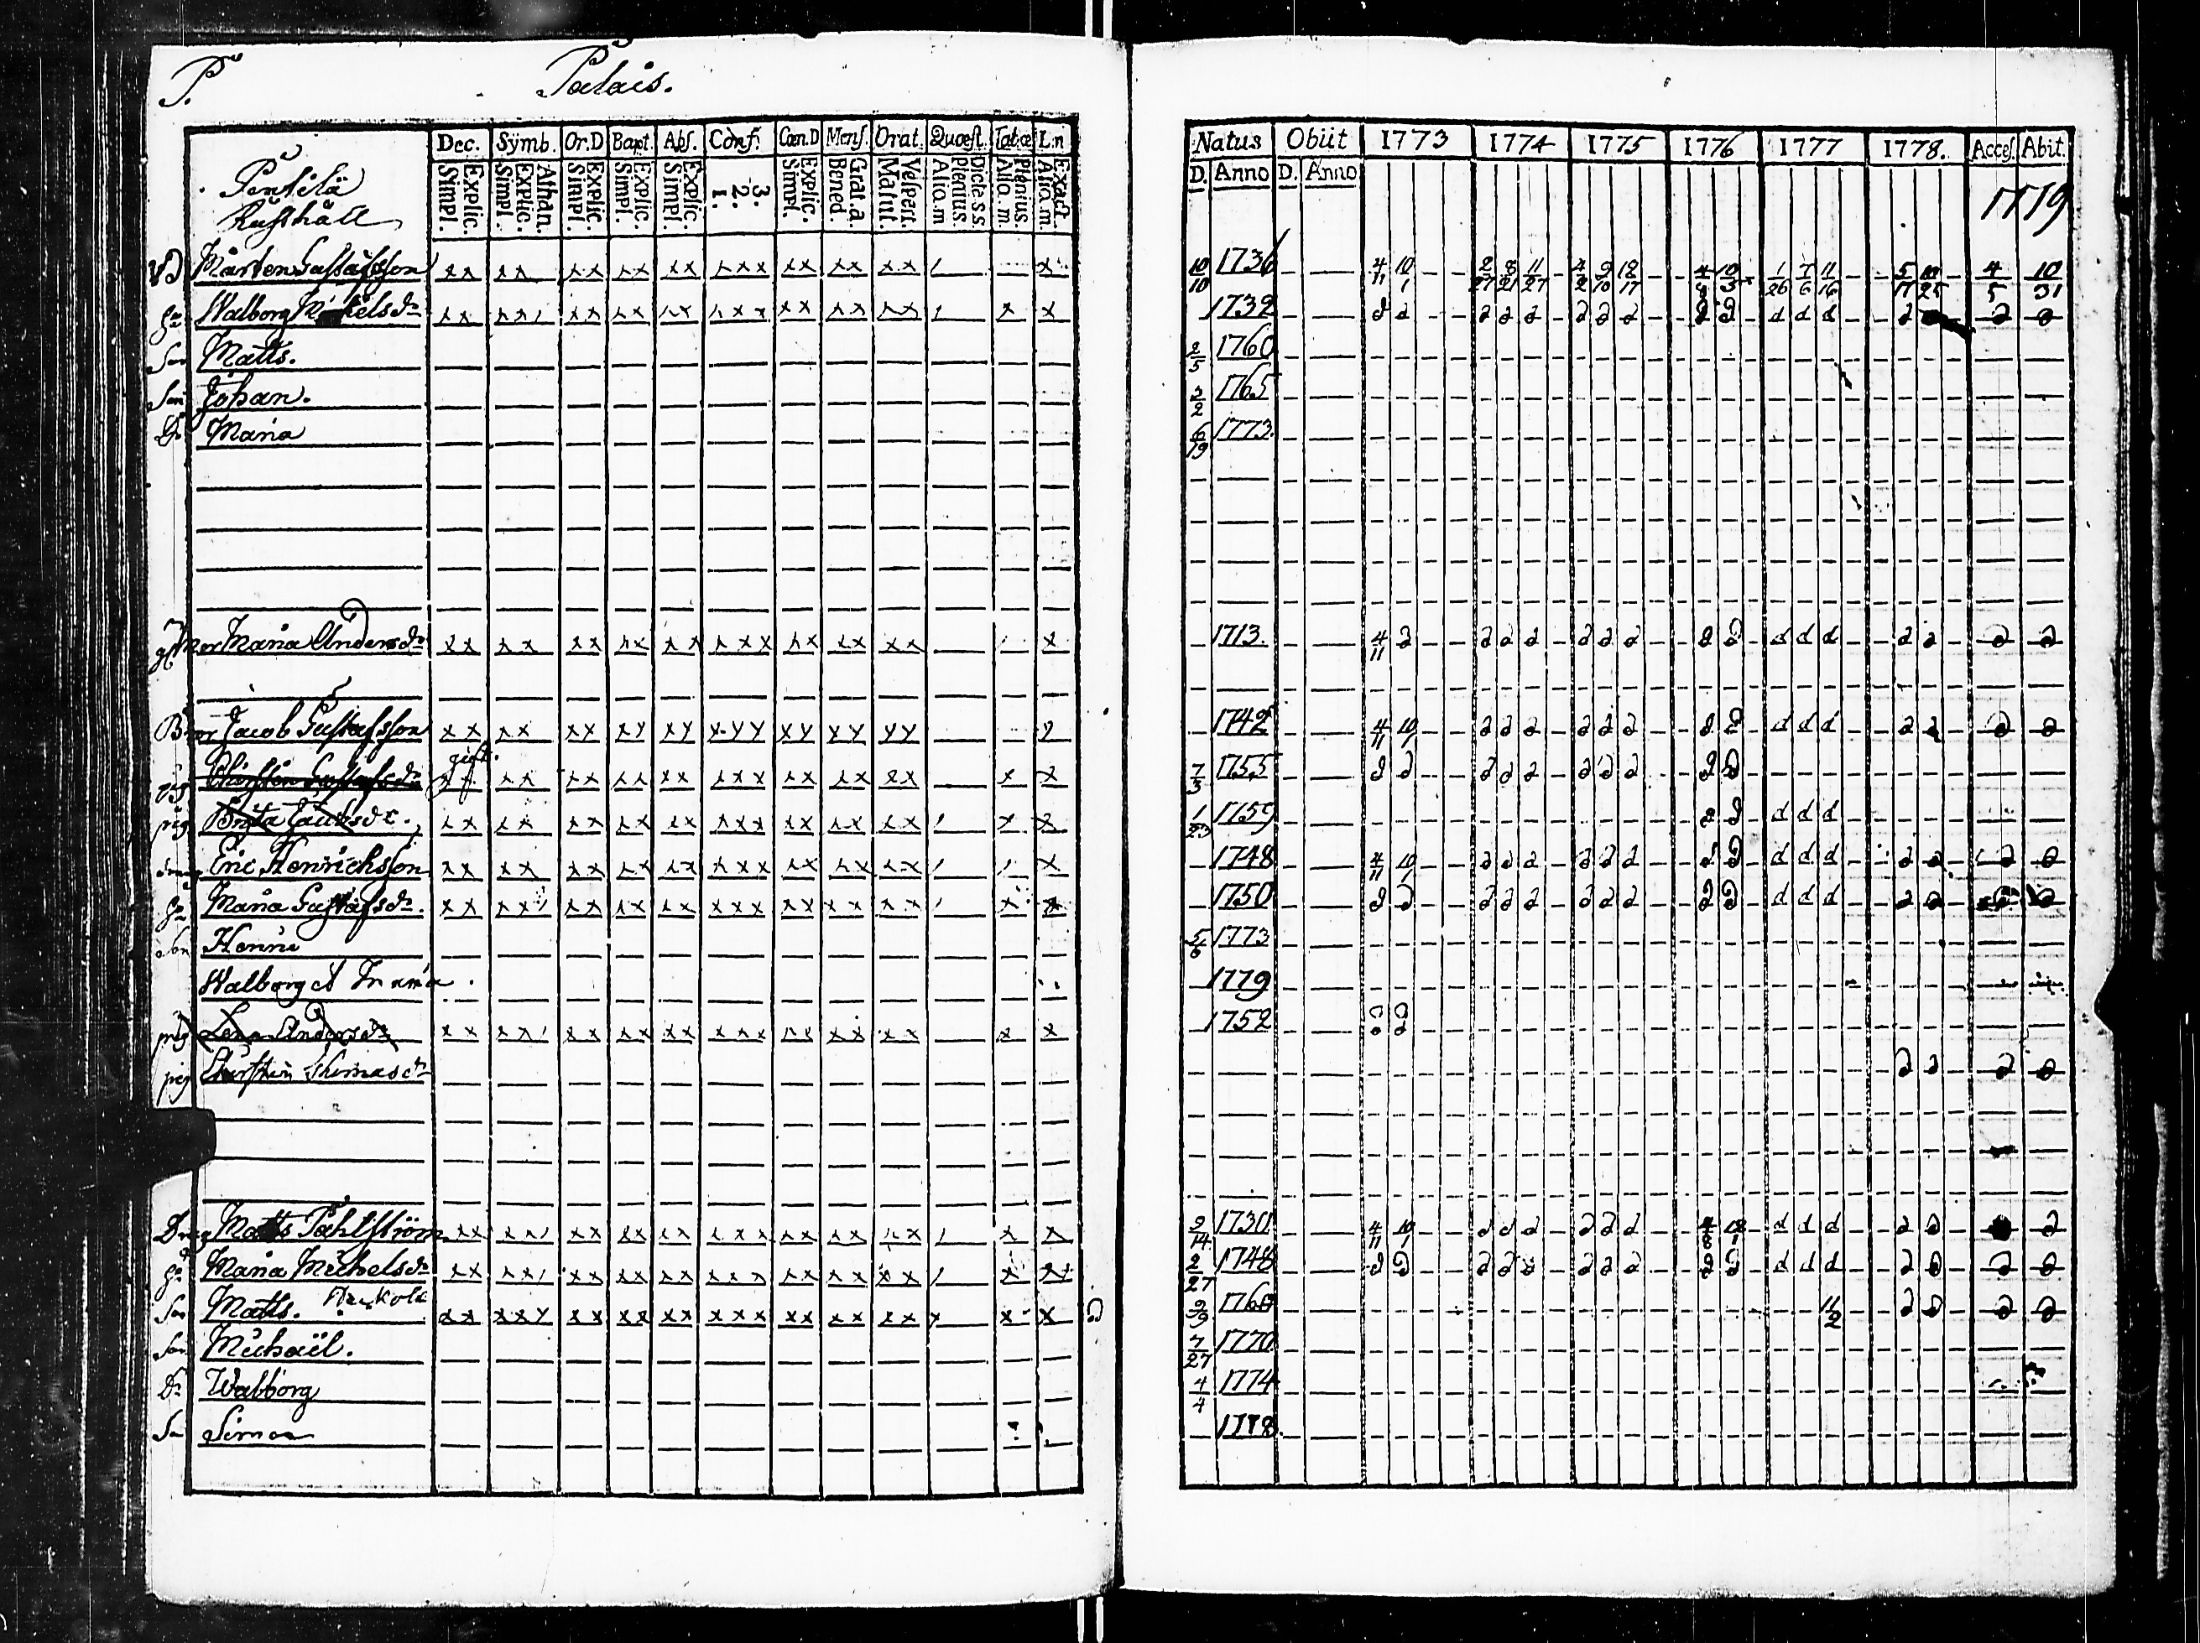 P. Palais.
Dec. Symb. Or.D Bapt. Abs. Conf. Cœn.D Mens. Orat. Quæst. Tab.œ L.n
Explic. Simpl. Athan. Explic. Simpl. Explic. Simpl. Explic. Simpl. Explic. Simpl. 3. 2. 1. Explic. Simpl. Grat.a. Bened. Vespert. Matut. D.ide s.s. plenius. Aliq.m Plenius. Aliq.m Exact. Aliq.m
Pentilä
Rusthåll
Mårten Gustafsson xx xx xx xx xx xxx xx xx xx x
Walborg Michelsdr xx xx xx xx xx xxx xx xx xx x x
Son Matts.
Son Johan.
Dr Maria
Mor Maria Andersdr xx xx xx xx xx xxx xx xx xx x
Bror Jacob Gustafsson xx xx xx xx xx xxx xx xx xx
gift.
Christin Gustafsdr xx xx xx xx xxx xx xx xx x x
pig Brita Jacobsdr. xx xx xx xx xx xxx xx xx xx x x
dreng Eric Henrichsson xx xx xx xx xx xxx xx xx xx x
Maria Gustafsdr. xx xx xx xx xx xxx xx xx xx x x
Son Henric
Walborg et Maria
pig Lena Andersdr xx xx xx xx xx xxx xx xx xx x x
pig Christin Thomasdr
Dreng Matts Påhlström xx xx xx xx xx xxx xx xx xx x x
Maria Michelsdr xx xx xx xx xx xxx xx xx xx x x
Son Matts. xx xxx xx xx xx xxx xx xx xx x x x
Son Michaël.
Dr Walborg
Sn Simon
Natus Obiit 1773 1774 1775 1776 1777 1778. Acces. Abit.
D. Anno D. Anno
1779
10/10 1736 4/11 10/1 2/27 8/21 11/27 4/2 9/10 18/17 1/26 7/6 11/16 4/5 10/31
1732 d d d d d d d d d d d d d d d
2/5 1760
3/2 1765
6/19 1773.
1713. 4/11 d d d d d d d d d d d d d d d d
1742 4/11 10/1 d d d d d d d d d d d d d d d
7/3 1755 d d d d d d d d d d
1/23 1759 d d d d d
1748 4/11 10/1 d d d d d d d d d d d d d d d
1750 d d d d d d d d d d d d d d d d d
5/6 1773
1779
1752 d d
d d d d
2/14 1730 4/11 10/1 d d d d d d d d d d d d
2/27 1748 d d d d d d d d d d d d d d d d d
9/9 1760 11/2 d d d d
7/27 1770
4/4 1774
1778.